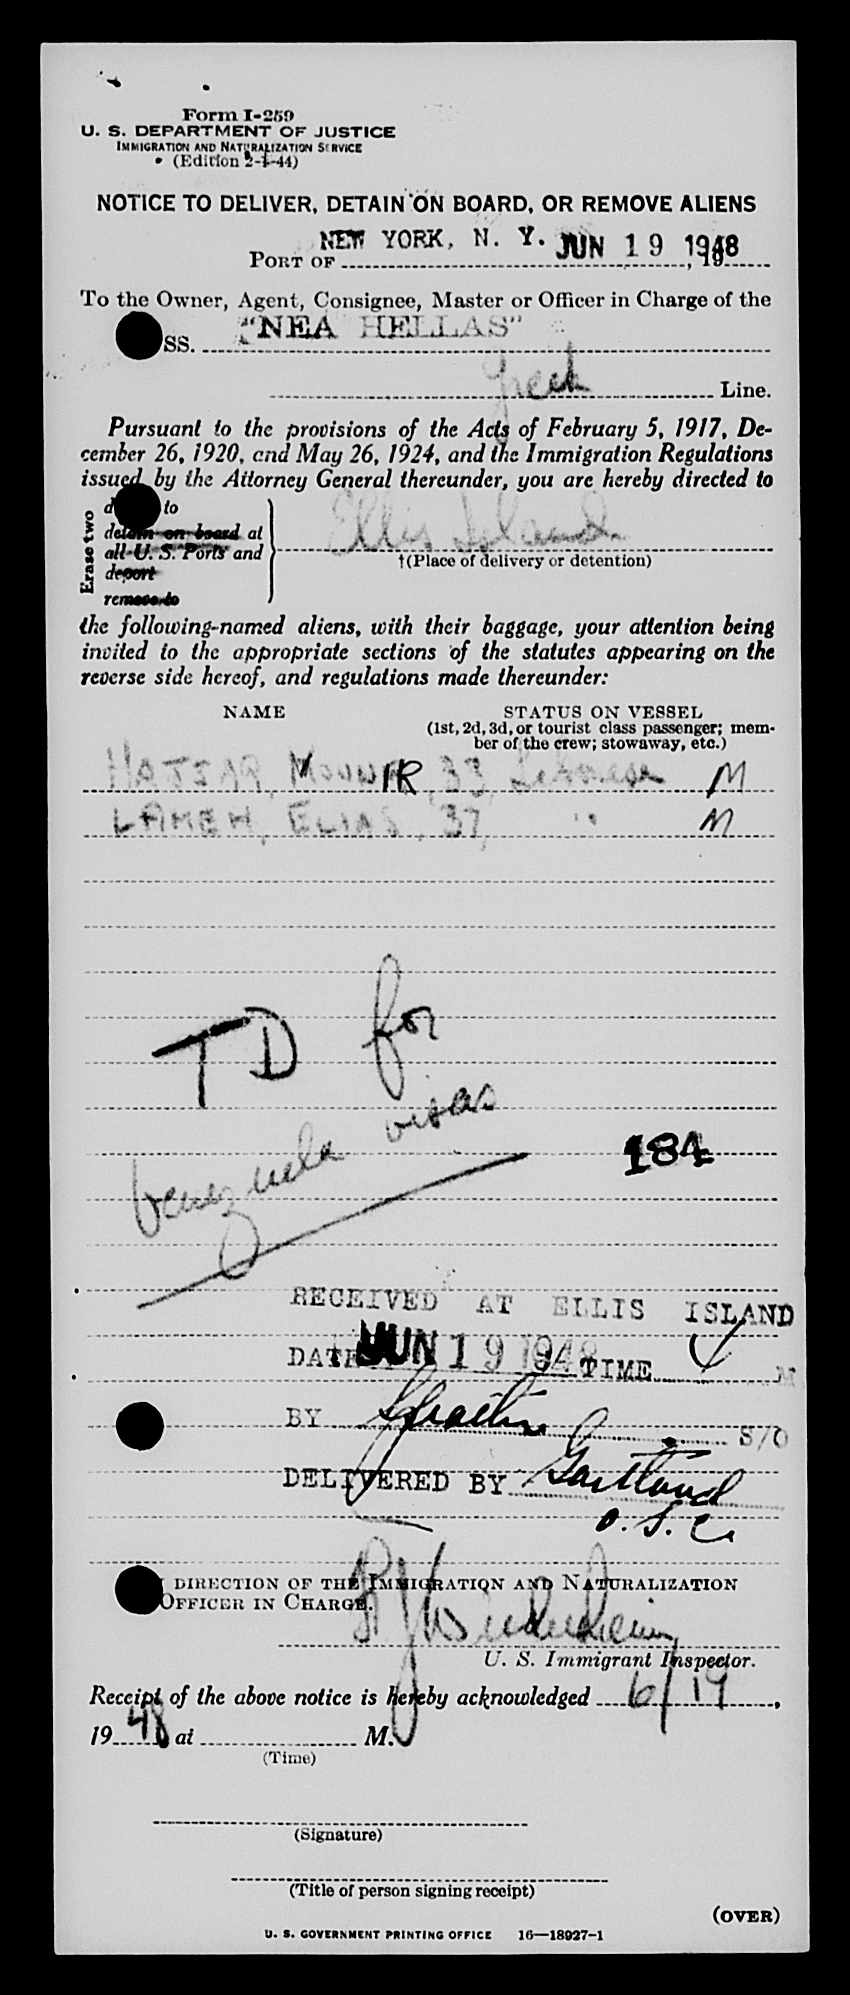 Form I-259
U. S. DEPARTMENT OF JUSTICE
IMMIGRATION AND NATURALIZATION SERVICE
(Edition 2-1-44)
NOTICE TO DELIVER, DETAIN ON BOARD, OR REMOVE ALIENS
PORT OF NEW YORK, N. Y. JUN 19 1948, 19
To the Owner, Agent, Consignee, Master or Officer in Charge of the
SS. "NEA HELLAS"
Greek Line.
Pursuant to the provisions of the Acts of February 5, 1917, De-
cember 26, 1920, and May 26, 1924, and the Immigration Regulations
issued by the Attorney General thereunder, you are hereby directed to
Erase two
d to
detain on board at
all U. S. Ports and
deport
remove to
Ellis Island
†(Place of delivery or detention)
the following-named aliens, with their baggage, your attention being
invited to the appropriate sections of the statutes appearing on the
reverse side hereof, and regulations made thereunder:
NAME STATUS ON VESSEL
(1st, 2d, 3d, or tourist class passenger; mem-
ber of the crew; stowaway, etc.)
HAJJAR, MOUNIR, 33, Lebanese M
LAMEH, ELIAS, 37, " M
TD for
Venezuela visas
184
RECEIVED AT ELLIS ISLAND
DATE JUN 19 1948 TIME M
BY S/O
DELIVERED BY Gartland
O. S. C.
DIRECTION OF THE IMMIGRATION AND NATURALIZATION
OFFICER IN CHARGE.
U. S. Immigrant Inspector.
Receipt of the above notice is hereby acknowledged 6/19,
19 48 at M.
(Time)
(Signature)
(Title of person signing receipt)
(OVER)
U. S. GOVERNMENT PRINTING OFFICE 16—18927-1